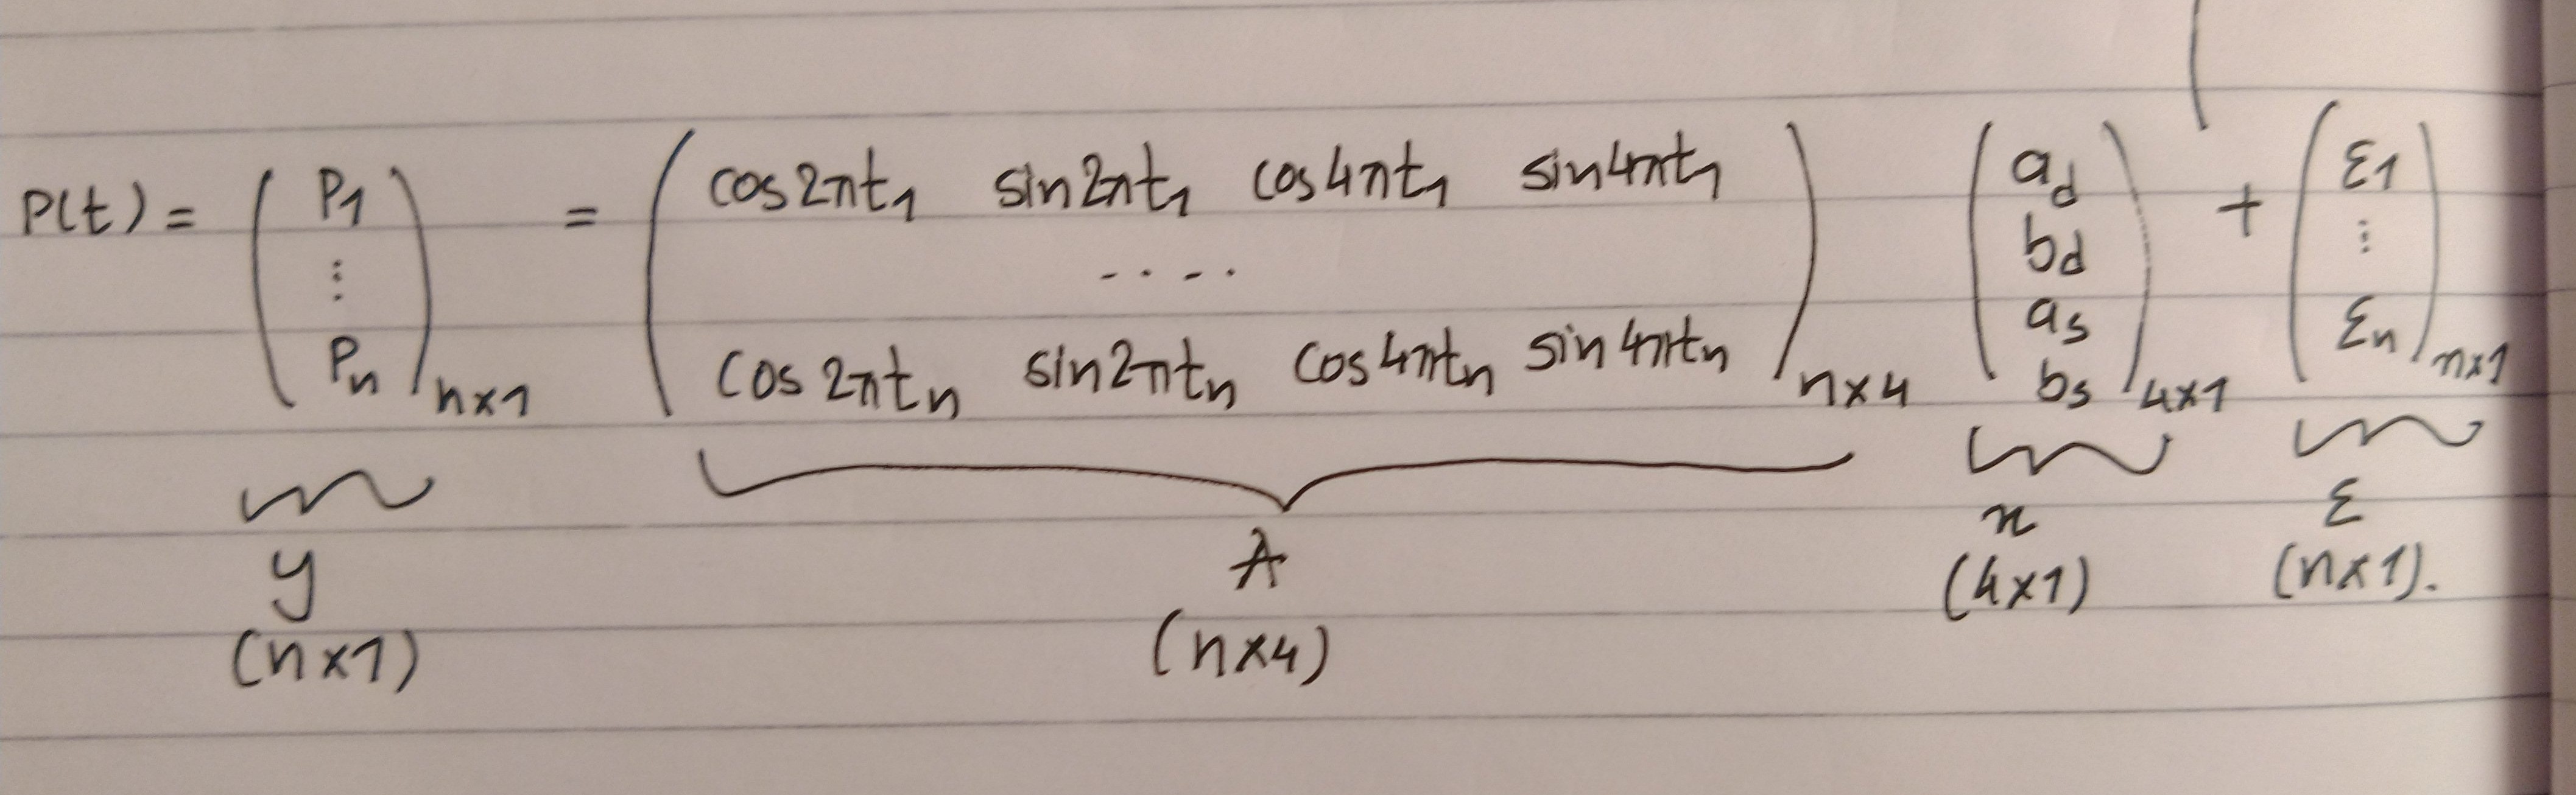 P(t) = ( P1 ⋮ Pn )n×1 = ( cos2πt1 sin2πt1 cos4πt1 sin4πt1 .... cos2πtn sin2πtn cos4πtn sin4πtn )n×4 ( ad bd as bs )4×1 + ( ε1 ⋮ εn )n×1
y A x ε
(n×1) (n×4) (4×1) (n×1).